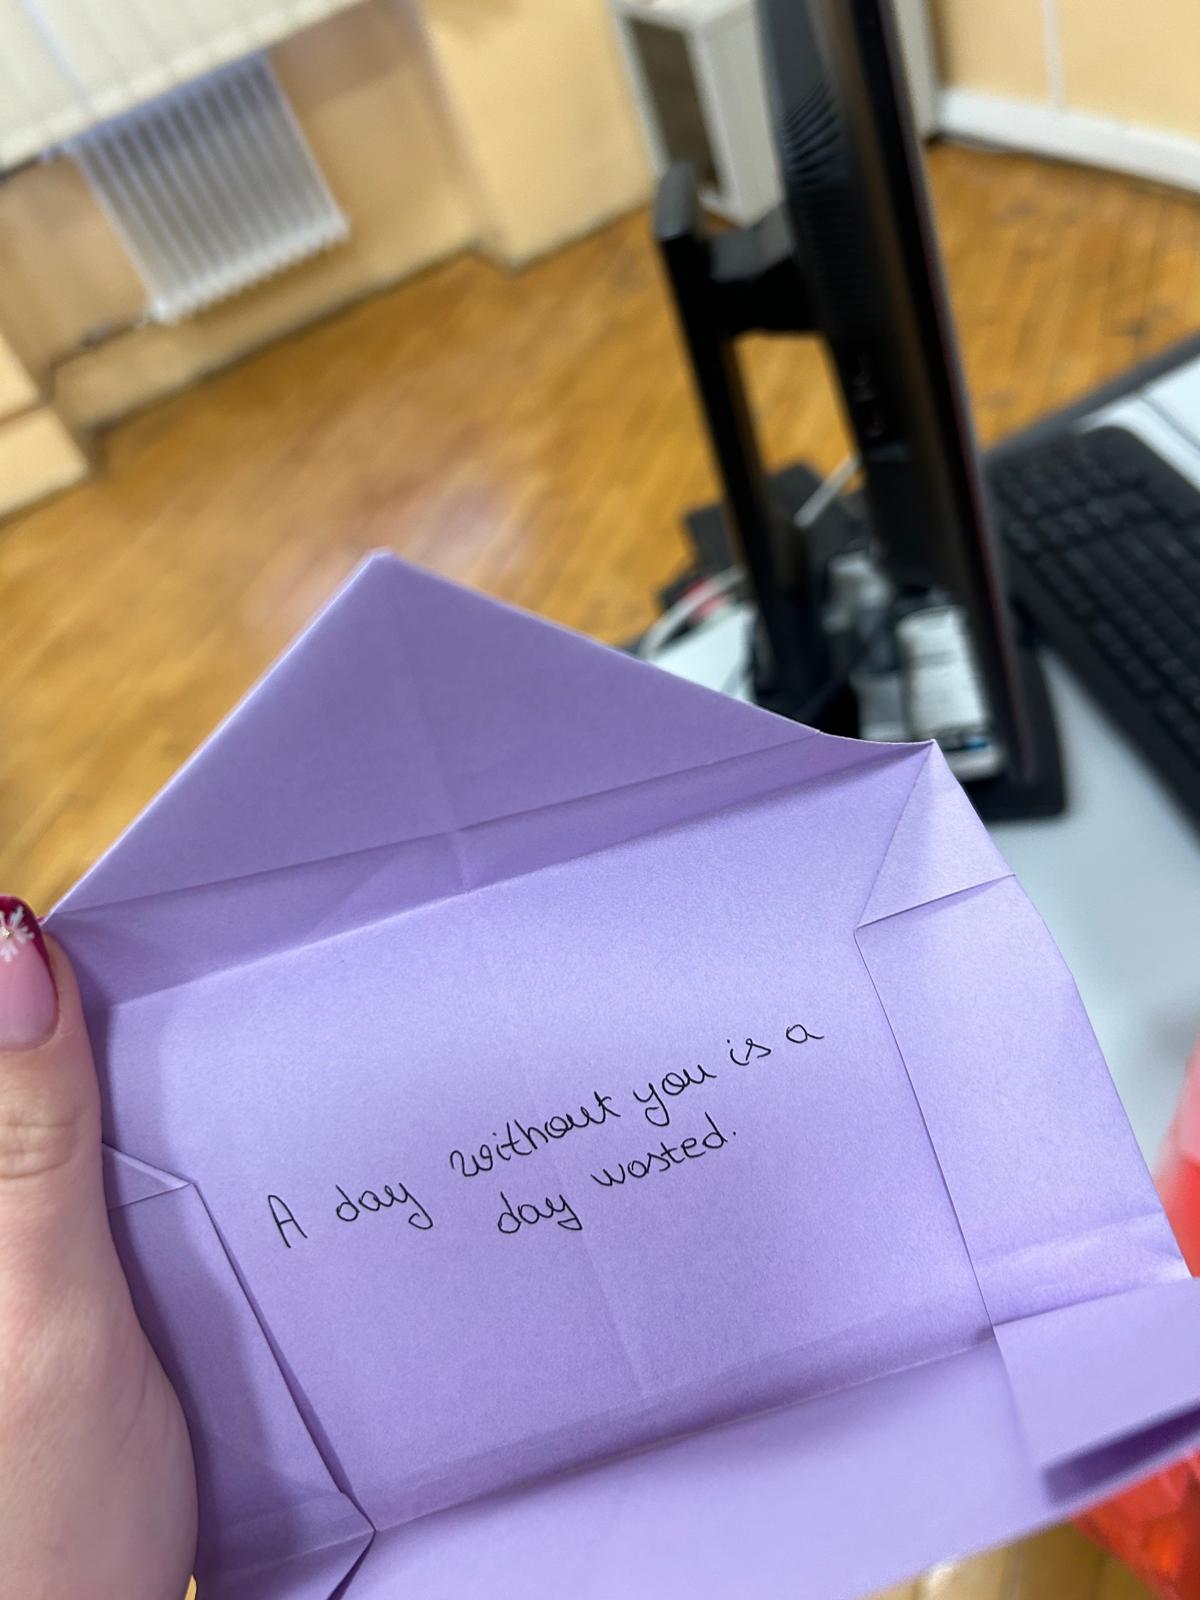 A day without you is a
day wasted.